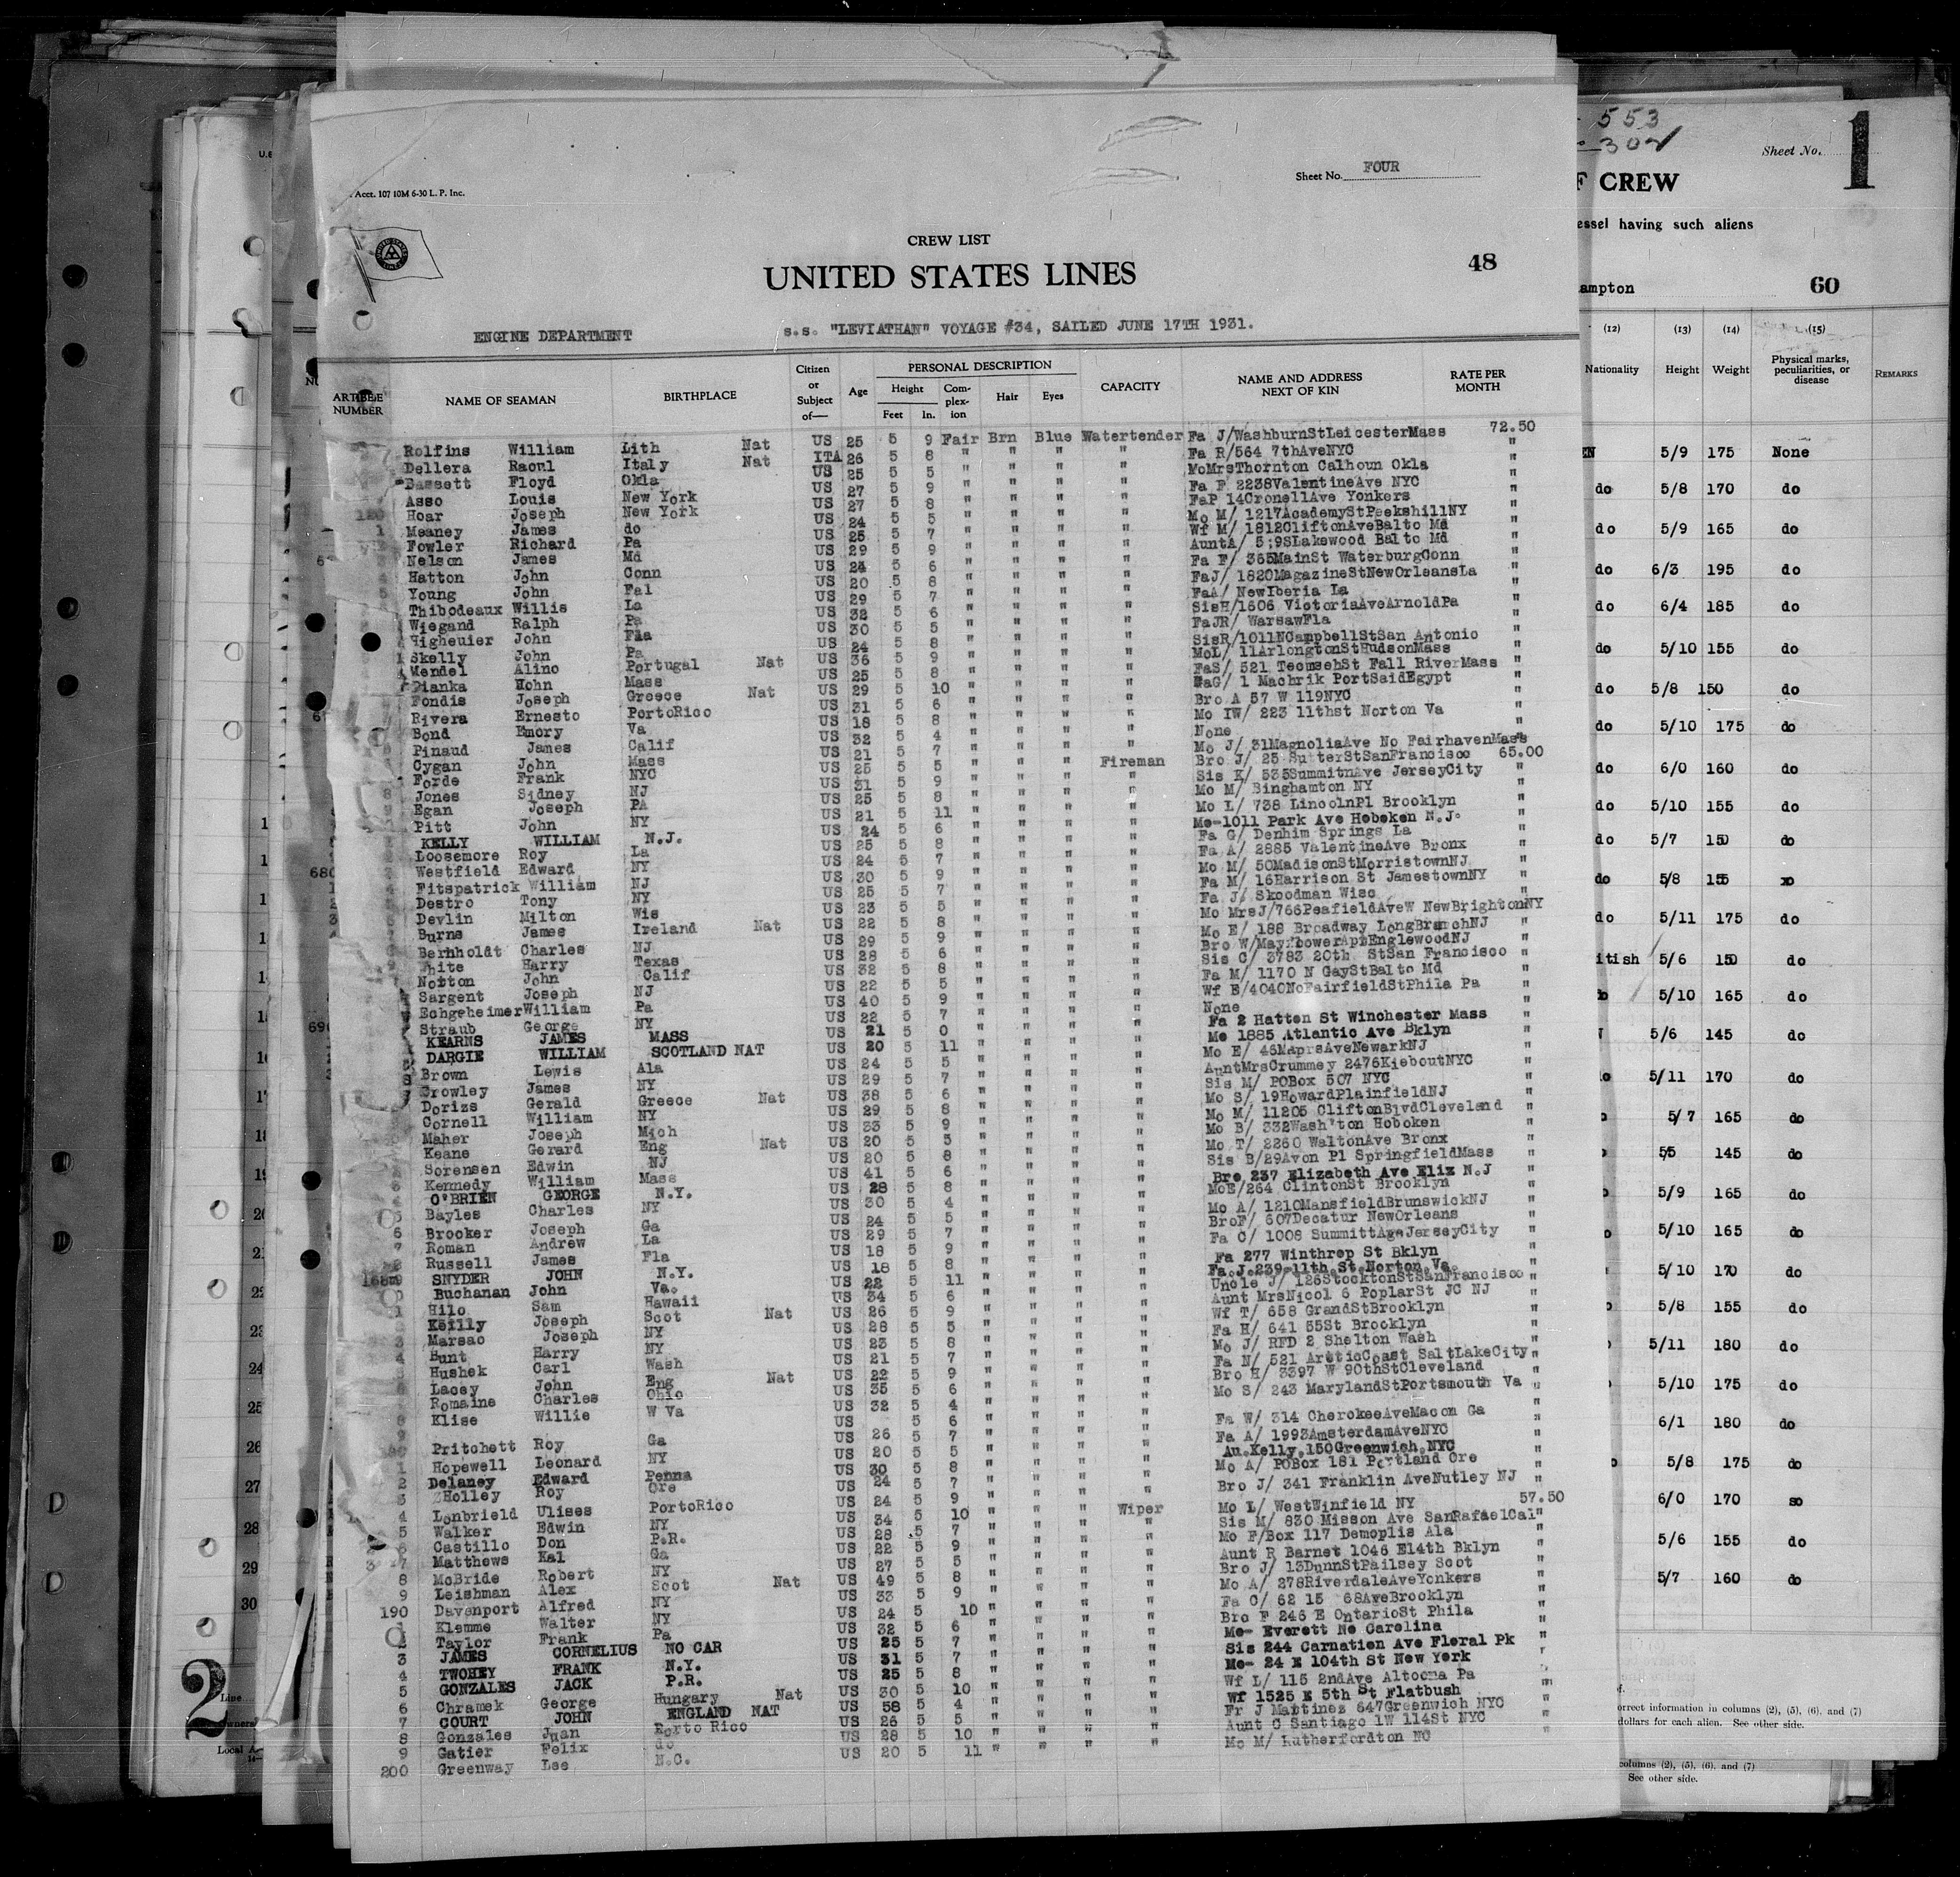 Acct. 107 10M 6-30 L. P. Inc.
Sheet No. FOUR
CREW LIST
UNITED STATES LINES
48
ENGINE DEPARTMENT s.s. "LEVIATHAN" VOYAGE #34, SAILED JUNE 17TH 1931.
ARTICLE NUMBER NAME OF SEAMAN BIRTHPLACE Citizen or Subject of— Age PERSONAL DESCRIPTION Height Feet In. Complexion Hair Eyes CAPACITY NAME AND ADDRESS NEXT OF KIN RATE PER MONTH
Rolfins William Lith Nat US 25 5 9 Fair Brn Blue Watertender Fa J/WashburnStLeicesterMass 72.50
Dellera Raoul Italy Nat ITA 26 5 8 " " " " Fa R/564 7thAveNYC "
Bassett Floyd Okla US 25 5 5 " " " " MoMrsThornton Calhoun Okla "
Asso Louis New York US 27 5 9 " " " " Fa F 2238ValentineAve NYC "
120 Hoar Joseph New York US 27 5 8 " " " " FaP 14CronellAve Yonkers "
1 Meaney James do US 24 5 5 " " " " Mo M/ 1217AcademyStPeekshillNY "
Fowler Richard Pa US 25 5 7 " " " " Wf M/ 1812CliftonAveBalto Md "
Nelson James Md US 29 5 9 " " " " AuntA/ 5:9SLakewood Balto Md "
Hatton John Conn US 24 5 6 " " " " Fa F/ 365MainSt WaterburgConn "
Young John Fal US 20 5 8 " " " " FaJ/ 1820MagazineStNewOrleansLa "
Thibodeaux Willis La US 29 5 7 " " " " FaA/ NewIberia La "
Wiegand Ralph Pa US 32 5 6 " " " " SisH/1606 VictoriaAveArnoldPa "
Higheuier John Fla US 30 5 5 " " " " FaJR/ WarsawFla "
Skelly John Pa US 24 5 8 " " " " SisR/1011NCampbellStSan Antonio "
Mendel Alino Portugal Nat US 36 5 9 " " " " MoL/ 11ArlongtonStHudsonMass "
Pianka Hohn Mass US 25 5 8 " " " " FaS/ 521 TecmsehSt Fall RiverMass "
Fondis Joseph Greece Nat US 29 5 10 " " " " FaG/ 1 Machrik PortSaidEgypt "
Rivera Ernesto PortoRico US 31 5 6 " " " " Bro A 57 W 119NYC "
Bond Emory Va US 18 5 8 " " " " Mo IW/ 223 11thst Norton Va "
Pinaud James Calif US 32 5 4 " " " " None "
Cygan John Mass US 21 5 7 " " " " Mo J/ 31MagnoliaAve No FairhavenMass
Forde Frank NYC US 25 5 5 " " " Fireman Bro J/ 25 SutterStSanFrancisco 65.00
Jones Sidney NJ US 31 5 9 " " " " Sis K/ 535SummitnAve JerseyCity "
Egan Joseph PA US 25 5 8 " " " " Mo M/ Binghamton NY "
Pitt John NY US 21 5 11 " " " " Mo L/ 738 LincolnPl Brooklyn "
KELLY WILLIAM N.J. US 24 5 6 " " " " Mo-1011 Park Ave Hoboken N.J. "
Loosemore Roy La US 25 5 8 " " " " Fa G/ Denhim Springs La "
Westfield Edward NY US 24 5 7 " " " " Fa A/ 2885 ValentineAve Bronx "
Fitspatrick William NJ US 30 5 9 " " " " Mo M/ 50MadisonStMorristownNJ "
Destro Tony NY US 25 5 7 " " " " Fa M/ 16Harrison St JamestownNY "
Devlin Milton Wis US 23 5 5 " " " " Fa J/ Skoodman Wisc "
Burns James Ireland Nat US 22 5 8 " " " " Mo MrsJ/766PeafieldAveW NewBrightonNY
Bernholdt Charles NJ US 29 5 9 " " " " Mo E/ 188 Broadway LongBranchNJ "
White Harry Texas US 28 5 6 " " " " Bro W/MayflowerAptEnglewoodNJ "
Norton John Calif US 32 5 8 " " " " Sis C/ 3783 20th StSan Francisco "
Sargent Joseph NJ US 22 5 5 " " " " Fa M/ 1170 N GayStBalto Md "
Echgeheimer William Pa US 40 5 9 " " " " Wf E/4040NoFairfieldStPhila Pa "
Straub George NY US 22 5 7 " " " " None "
KEARNS JAMES MASS US 21 5 0 " " " " Fa 2 Hatten St Winchester Mass "
DARGIE WILLIAM SCOTLAND NAT US 20 5 11 " " " " Me 1885 Atlantic Ave Bklyn "
Brown Lewis Ala US 24 5 5 " " " " Mo E/ 45MaprsAveNewarkNJ "
Crowley James NY US 29 5 7 " " " " AuntMrsCrummey 2476KieboutNYC "
Dorizs Gerald Greece Nat US 38 5 6 " " " " Sis M/ POBox 507 NYC "
Cornell William NY US 29 5 8 " " " " Mo S/ 19HowardPlainfieldNJ "
Maher Joseph Mich US 33 5 9 " " " " Mo M/ 11205 CliftonBlvdCleveland "
Keane Gerard Eng Nat US 20 5 5 " " " " Mo B/ 332Wash'ton Hoboken "
Sorensen Edwin NJ US 20 5 8 " " " " Mo T/ 2260 WaltonAve Bronx "
Kennedy William Mass US 41 5 6 " " " " Sis B/29Avon Pl SpringfieldMass "
O'BRIEN GEORGE N.Y. US 28 5 8 " " " " Bro 237 Elizabeth Ave Eliz N.J "
Bayles Charles NY US 30 5 4 " " " " MoE/264 ClintonSt Brooklyn "
6 Brooker Joseph Ga US 24 5 5 " " " " Mo A/ 1210MansfieldBrunswickNJ "
7 Roman Andrew La US 29 5 7 " " " " BroF/ 607Decatur NewOrleans "
Russell James Fla US 18 5 9 " " " " Fa C/ 1008 SummittAveJerseyCity "
SNYDER JOHN N.Y. US 18 5 8 " " " " Fa 277 Winthrop St Bklyn "
Buchanan John Va. US 22 5 11 " " " " Fa.J.239-11th.St.Norton.Va. "
1 Hilo Sam Hawaii US 34 5 6 " " " " Uncle J/ 126StocktonStSanFrancisco "
Keilly Joseph Scot Nat US 26 5 9 " " " " Aunt MrsNicol 6 PoplarSt JC NJ "
3 Marsac Joseph NY US 28 5 5 " " " " Wf T/ 658 GrandStBrooklyn "
4 Hunt Harry NY US 23 5 8 " " " " Fa H/ 641 55St Brooklyn "
Hushek Carl Wash US 21 5 7 " " " " Mo J/ RFD 2 Shelton Wash "
Lacey John Eng Nat US 22 5 9 " " " " Fa N/ 521 ArcticCoast SaltLakeCity "
Romaine Charles Ohio US 35 5 6 " " " " Bro H/ 3397 W 90thStCleveland "
8 Klise Willie W Va US 32 5 4 " " " " Mo S/ 243 MarylandStPortsmouth Va "
9 US 5 6 " " " "
Pritchett Roy Ga US 26 5 7 " " " " Fa W/ 314 CherokeeAveMacon Ga "
1 Hopewell Leonard NY US 20 5 5 " " " " Fa A/ 1993AmsterdamAveNYC "
2 Delaney Edward Penna US 30 5 8 " " " " Au.Kelly.150Greenwich.NYC "
3 Holley Roy Ore US 24 5 7 " " " " Mo A/ POBox 181 Portland Ore "
4 Lonbrield Ulises PortoRico US 24 5 9 " " " " Bro J/ 341 Franklin AveNutley NJ "
5 Walker Edwin NY US 34 5 10 " " " Wiper Mo L/ WestWinfield NY 57.50
6 Castillo Don P.R. US 28 5 7 " " " " Sis M/ 830 Misson Ave SanRafaelCal"
7 Matthews Kal Ga US 22 5 9 " " " " Mo F/Box 117 Demoplis Ala "
8 McBride Robert NY US 27 5 5 " " " " Aunt R Barnet 1046 E14th Bklyn "
9 Leishman Alex Scot Nat US 49 5 8 " " " " Bro J/ 13DunnStPailsey Scot "
190 Davenport Alfred NY US 33 5 9 " " " " Mo A/ 278RiverdaleAveYonkers "
1 Klemme Walter NY US 24 5 10 " " " " Fa C/ 62 15 68AveBrooklyn "
2 Taylor Frank Pa US 32 5 6 " " " " Bro F 246 E OntarioSt Phila "
3 JAMES CORNELIUS NO CAR US 25 5 7 " " " " Me- Everett No Carolina "
4 TWOHEY FRANK N.Y. US 31 5 7 " " " " Sis 244 Carnation Ave Floral Pk "
5 GONZALES JACK P.R. US 25 5 8 " " " " Me- 24 E 104th St New York "
6 Chramek George Hungary Nat US 30 5 10 " " " " Wf L/ 115 2ndAve Altoona Pa "
7 COURT JOHN ENGLAND NAT US 58 5 4 " " " " Wf 1525 E 5th St Flatbush "
8 Gonzales Juan Porto Rico US 26 5 5 " " " " Fr J Martinez 647Greenwich NYC "
9 Gatier Felix do US 28 5 10 " " " " Aunt C Santiago 1W 114St NYC "
200 Greenway Lee N.C. US 20 5 11 " " " " Mo M/ Rutherfordton NC "
553
307
Sheet No. 1
F CREW
essel having such aliens
ampton 60
(12) (13) (14) (15)
Nationality Height Weight Physical marks, peculiarities, or disease REMARKS
EN 5/9 175 None
do 5/8 170 do
do 5/9 165 do
do 6/3 195 do
do 6/4 185 do
do 5/10 155 do
do 5/8 150 do
do 5/10 175 do
do 6/0 160 do
do 5/10 155 do
do 5/7 150 do
do 5/8 155 xo
do 5/11 175 do
itish 5/6 150 do
do 5/10 165 do
5/6 145 do
do 5/11 170 do
5/7 165 do
5/5 145 do
5/9 165 do
5/10 165 do
5/10 170 do
5/8 155 do
5/11 180 do
5/10 175 do
6/1 180 do
5/8 175 do
6/0 170 so
5/6 155 do
5/7 160 do
orrect information in columns (2), (5), (6), and (7)
dollars for each alien. See other side.
columns (2), (5), (6), and (7)
See other side.
19
20
21
22
23
24
25
26
27
28
29
30
2
Line
Owners
Local A